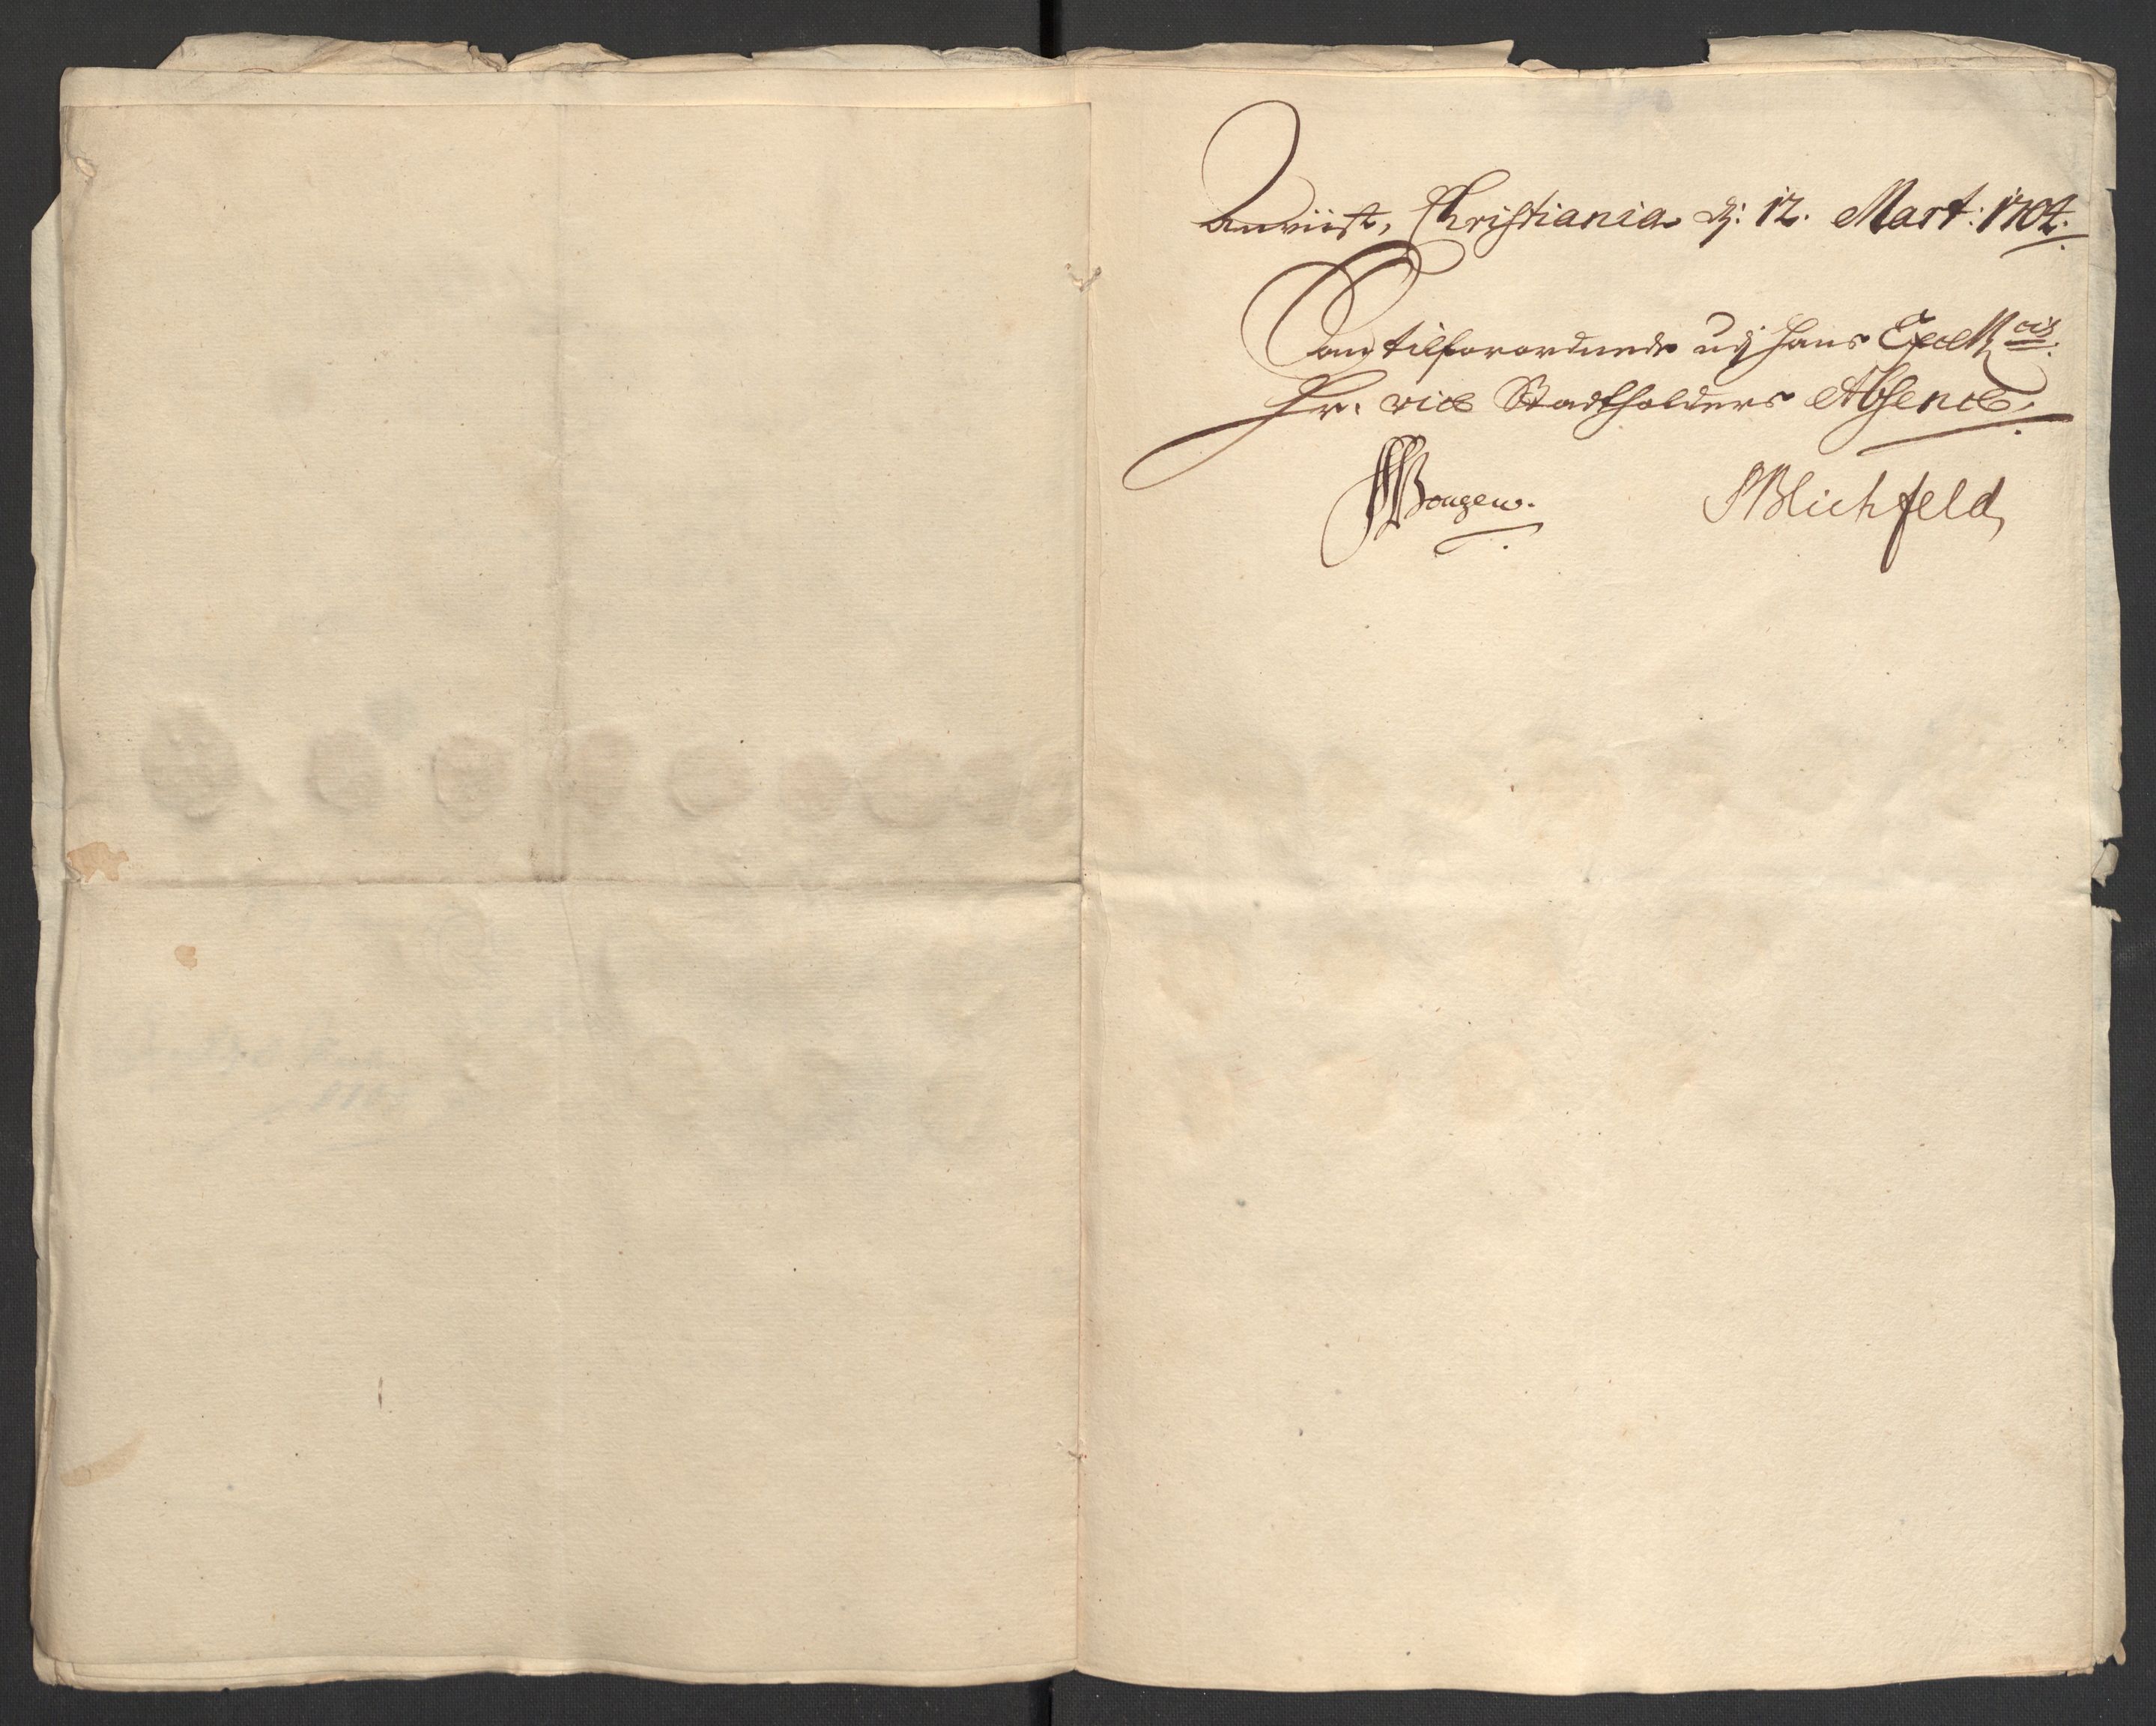 Anviist, Christiania dj: 12. Mart: 1704.
Som tilforordnede udj hans Excell cis
Hr. vice Stadtholders Absence,
Bougen. SBlichfeld,